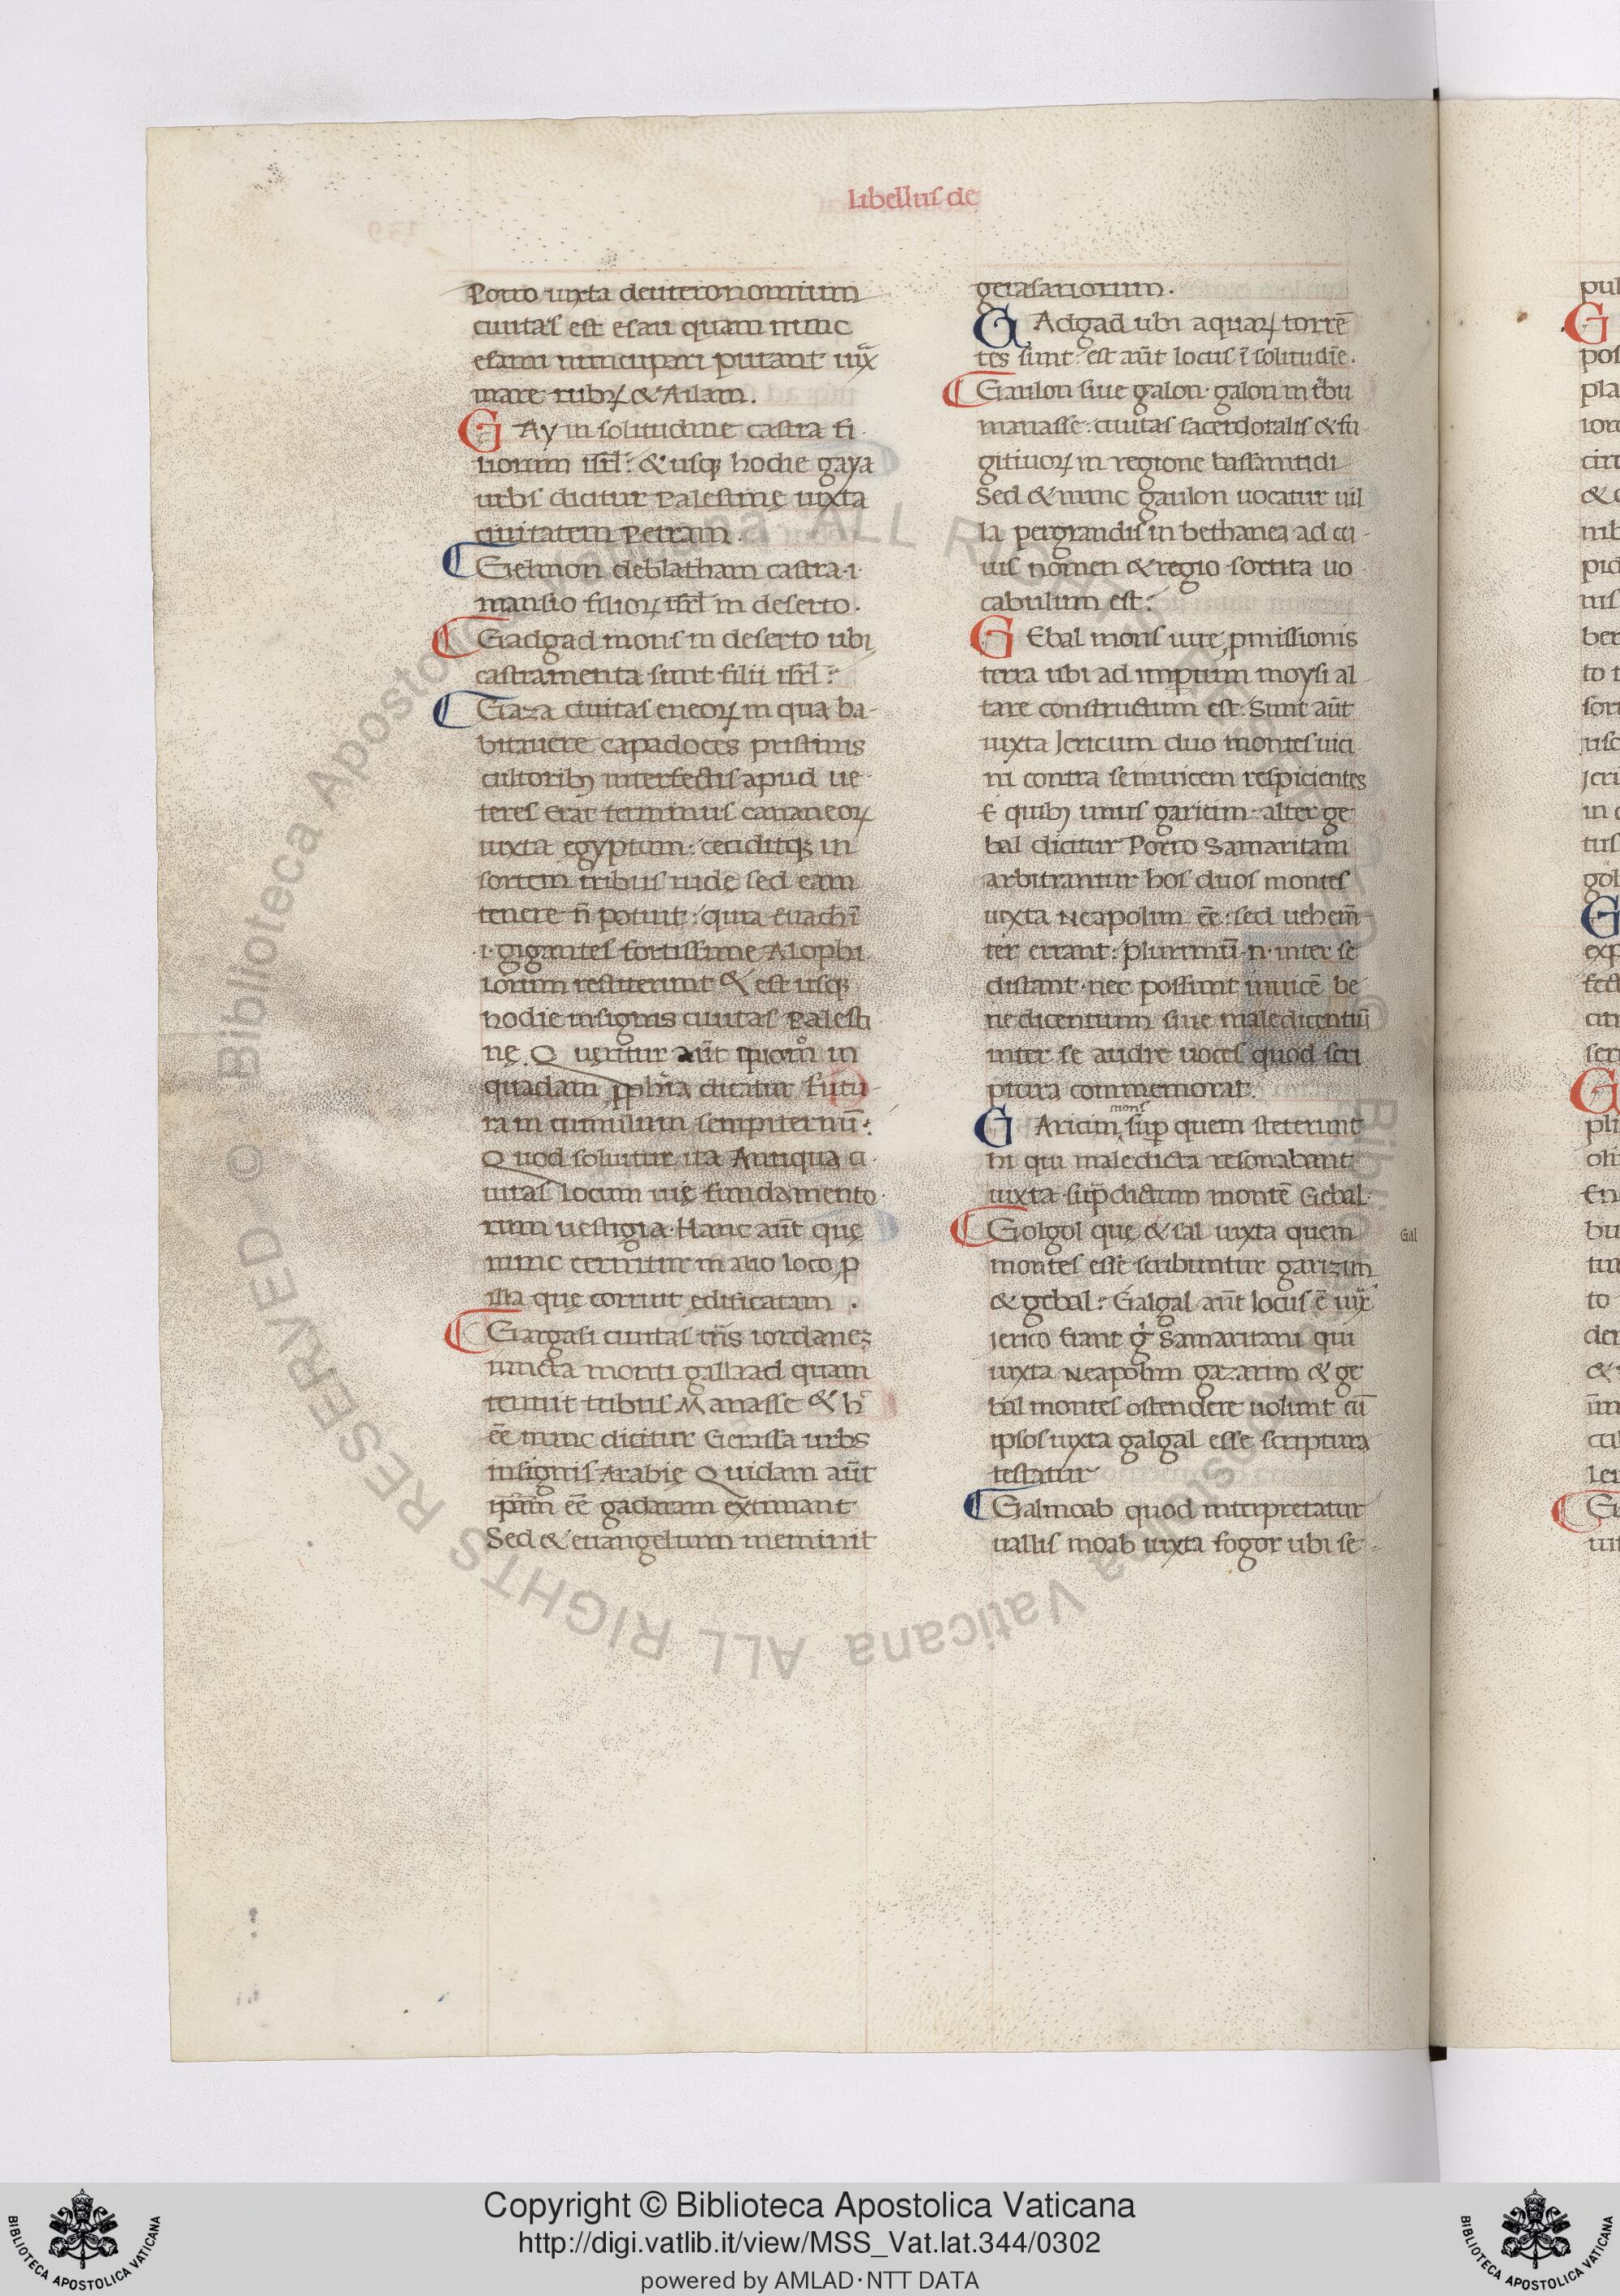 Libellus de
Porro iuxta deuteronomium
ciuitas est esau quam nunc
esam nuncupari putant iux̄
mare rubꝝ & Ailam.
GAy in solitudine castra fi
liorum isr̄l: & usqꝫ hodie gaya
urbs dicitur Palestinę iuxta
ciuitatem Petram.
Gelmon deblatham castra .i.
mansio filioꝝ isr̄l in deserto.
Gadgad mons in deserto ubi
castramenta sunt filii isr̄l:
Gaza ciuitas eneoꝝ in qua ha-
bitauere capadoces pristinis
cultoribꝫ interfectis apud ue-
teres erat terminus cananeoꝝ
iuxta egyptum: ceciditqꝫ in
sortem tribus iudę sed eam
tenere n̄ potuit: quia Euachī
.i. gigantes fortissime Alophi
lorum restiterunt & est usqꝫ
hodie insignis ciuitas Palesti
nę. Q uęritur aūt in
quadam dicatur futu-
ram cumulum sempiternū:
Quod soluitur ita Antiqua ci-
uitas locum uię fundamento-
rum uestigia. Hanc aūt quę
nunc cernitur in alio loco ꝓ
illa quę corruit edificatam.
Gargasi ciuitas trās iordanez
iuncta monti gallaad quam
tenuit tribus Manasse & h̄
ēē nunc dicitur Gerassa urbs
insignis Arabię Quidam aūt
ipsam ēē gadaram extimant
Sed & euangelium meminit
gerasanorum.
GAdgad ubi aquaꝝ torrē
tes sunt: est aūt locus ī solitudīe.
Gaulon siue galon. galon in tbu
manasse: ciuitas sacerdotalis & fu
gitiuoꝝ in regione bassanitidi
Sed & nunc gaulon uocatur uil
la pergrandis in bethanea ad cu-
ius nomen & regio sortita uo
cabulum est:
GEbal mons iure ꝓmissionis
terra ubi ad imperium moysi al
tare constructum est. Sunt aūt
iuxta Jericum duo montes uici
ni contra se inuicem respicientes
E quibꝫ unus garicim alter ge
bal dicitur Porro Samaritam
arbitrantur hos duos montes
iuxta Neapolim ēē: sed uehem̄
ter errant: plurimū .n. inter se
distant. nec possunt inuicē be
nedicentium siue maledicentiū
inter se audire uoces quod scri
ptura commemorat.
mons
GAricim, suꝑ quem steterunt
hi qui maledicta resonabant
iuxta supdictum montē Gebal.
Golgol quę & ial iuxta quem
Gal
montes esse scribuntur garizim
& gebal: Galgal aūt locus ē iux̄
ierico Eiant g̊ Samaritani qui
iuxta Neapolim gazarim & ge
bal montes ostendere uolunt cū
ipsos iuxta galgal esse scriptura
testatur
Galmoab quod interpretatur
uallis moab iuxta fogor ubi se-
Copyright © Biblioteca Apostolica Vaticana
http://digi.vatlib.it/view/MSS_Vat.lat.344/0302
powered by AMLAD·NTT DATA
BIBLIOTECA APOSTOLICA VATICANA
BIBLIOTECA APOSTOLICA VATICANA